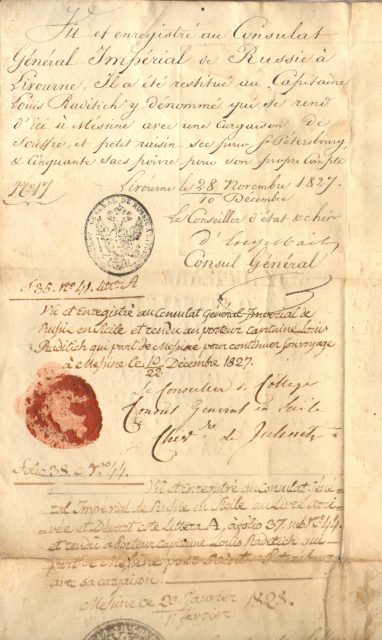 Vu et enregistré au Consulat
Général Impérial de Russie à
Livourne, Il a été restitué au Capitaine
Louis Raditich y dénommé qui se rend
d'ici à Messine avec une Cargaison de
Souffre et petit raisin sec pour St Pétersbourg
& Cinquante Sacs poivre pour son propre Compte
No 17
Livourne le 28 Novembre 1827.
10 Décembre
Le Conseiller d'état & cher
Consul Général
No 41. A
Vu et Enregistré au Consulat General Imperial de
Rusie en Sicile et rendu au porteur Capitaine Louis
Raditich qui part de Messine pour continuer son voyage
à Messine ce 10/22 Décembre 1827.
Le Conseiller de College
Consul General en Sicile
Chev. de
Folio 38 No 44.
Vu et Enregistré au Consulat Géné-
ral Imperial de Rusie en Sicile au Livre
et Départ Littera A, folio 37. No 44
et rendu a Porteur Capitaine Louis Raditich qui
part de Messine pour
avec sa cargaison.
Messine ce 20 Janvier 1828.
1 fevrier